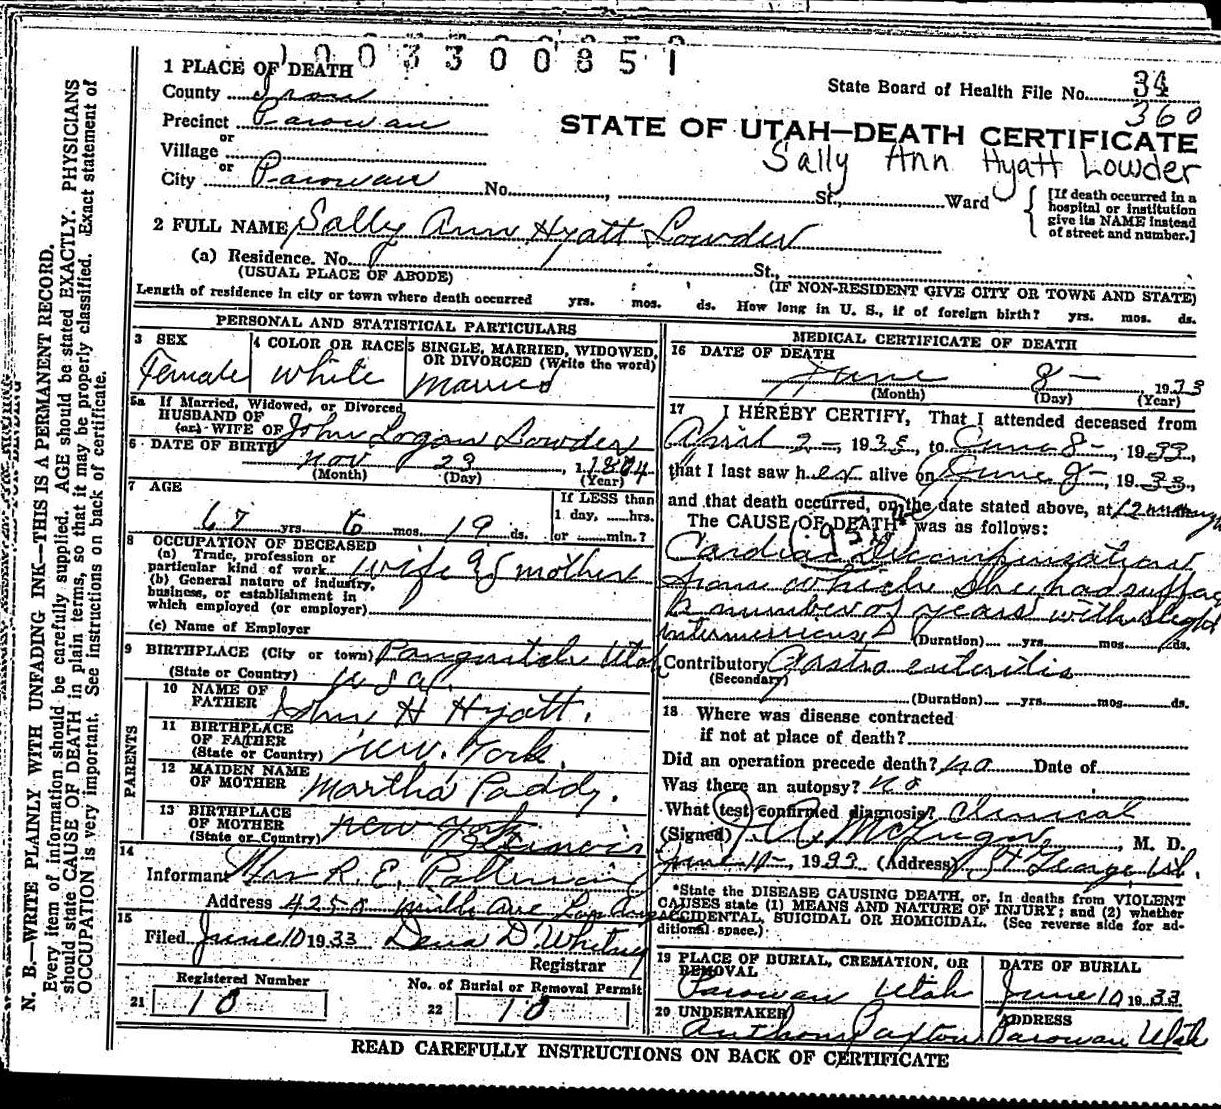 1003300851
1 PLACE OF DEATH
State Board of Health File No. 34
County Iron
360
Precinct Parowan
STATE OF UTAH—DEATH CERTIFICATE
or
Village
Sally Ann Hyatt Lowder
or
City Parowan No. , St., Ward
[If death occurred in a
hospital or institution
give its NAME instead
of street and number.]
2 FULL NAME Sally Ann Hyatt Lowder
(a) Residence. No. St.,
(USUAL PLACE OF ABODE) (IF NON-RESIDENT GIVE CITY OR TOWN AND STATE)
Length of residence in city or town where death occurred yrs. mos. ds. How long in U. S., if of foreign birth? yrs. mos. ds.
PERSONAL AND STATISTICAL PARTICULARS
3 SEX
Female
4 COLOR OR RACE
White
5 SINGLE, MARRIED, WIDOWED,
OR DIVORCED (Write the word)
Married
5a If Married, Widowed, or Divorced
HUSBAND OF
(or) WIFE OF John Logan Lowder
6 DATE OF BIRTH
Nov 23
(Month) (Day) (Year)
7 AGE
67 yrs 6 mos. 19 ds.
If LESS than
1 day, hrs.
or min.?
8 OCCUPATION OF DECEASED
(a) Trade, profession or
particular kind of work wife & mother
(b) General nature of industry,
business, or establishment in
which employed (or employer)
(c) Name of Employer
9 BIRTHPLACE (City or town) Panguitch Utah
(State or Country) U S A.
PARENTS
10 NAME OF
FATHER John H Hyatt.
11 BIRTHPLACE
OF FATHER
(State or Country) New York.
12 MAIDEN NAME
OF MOTHER Martha Paddy.
13 BIRTHPLACE
OF MOTHER
(State or Country) New York
Illinois
14
Informant Mrs R. E.
Address 4250
15
Filed June 10 1933 Dena D. Whitney
Registrar
Registered Number
21 18
No. of Burial or Removal Permit
22 18
MEDICAL CERTIFICATE OF DEATH
16 DATE OF DEATH
June 8— 1933
(Month) (Day) (Year)
17 I HEREBY CERTIFY, That I attended deceased from
April 2—, 1933, to June 8—, 1933,
that I last saw her alive on June 8—, 1933,
and that death occurred, on the date stated above, at 12
The CAUSE OF DEATH* was as follows:
Cardiac Decompensation
from which she had suffered
a number of years with slight
(Duration) yrs. mos. ds.
Contributory Gastro enteritis
(Secondary)
(Duration) yrs. mos. ds.
18 Where was disease contracted
if not at place of death?
Did an operation precede death? No Date of
Was there an autopsy? No
What test confirmed diagnosis? Clinical
(Signed) McGregor, M. D.
June 10—, 1933 (Address) St George Ut.
*State the DISEASE CAUSING DEATH, or, in deaths from VIOLENT
CAUSES state (1) MEANS AND NATURE OF INJURY; and (2) whether
ACCIDENTAL, SUICIDAL OR HOMICIDAL. (See reverse side for ad-
ditional space.)
19 PLACE OF BURIAL, CREMATION, OR
REMOVAL
Parowan Utah
DATE OF BURIAL
June 10 1933
20 UNDERTAKER
Anthony Paxton
ADDRESS
Parowan Utah
READ CAREFULLY INSTRUCTIONS ON BACK OF CERTIFICATE
N. B.—WRITE PLAINLY WITH UNFADING INK—THIS IS A PERMANENT RECORD.
Every item of information should be carefully supplied. AGE should be stated EXACTLY. PHYSICIANS
should state CAUSE OF DEATH in plain terms, so that it may be properly classified. Exact statement of
OCCUPATION is very important. See instructions on back of certificate.